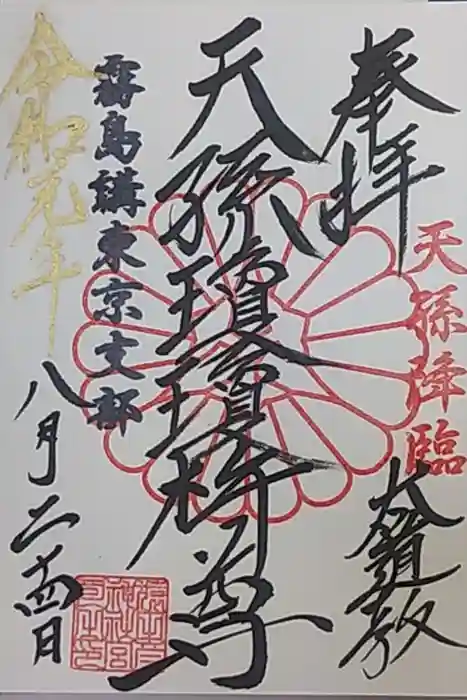 奉拝
天孫降臨
大教
天孫瓊瓊杵尊
霧島講東京支部
令和元年
八月二十四日